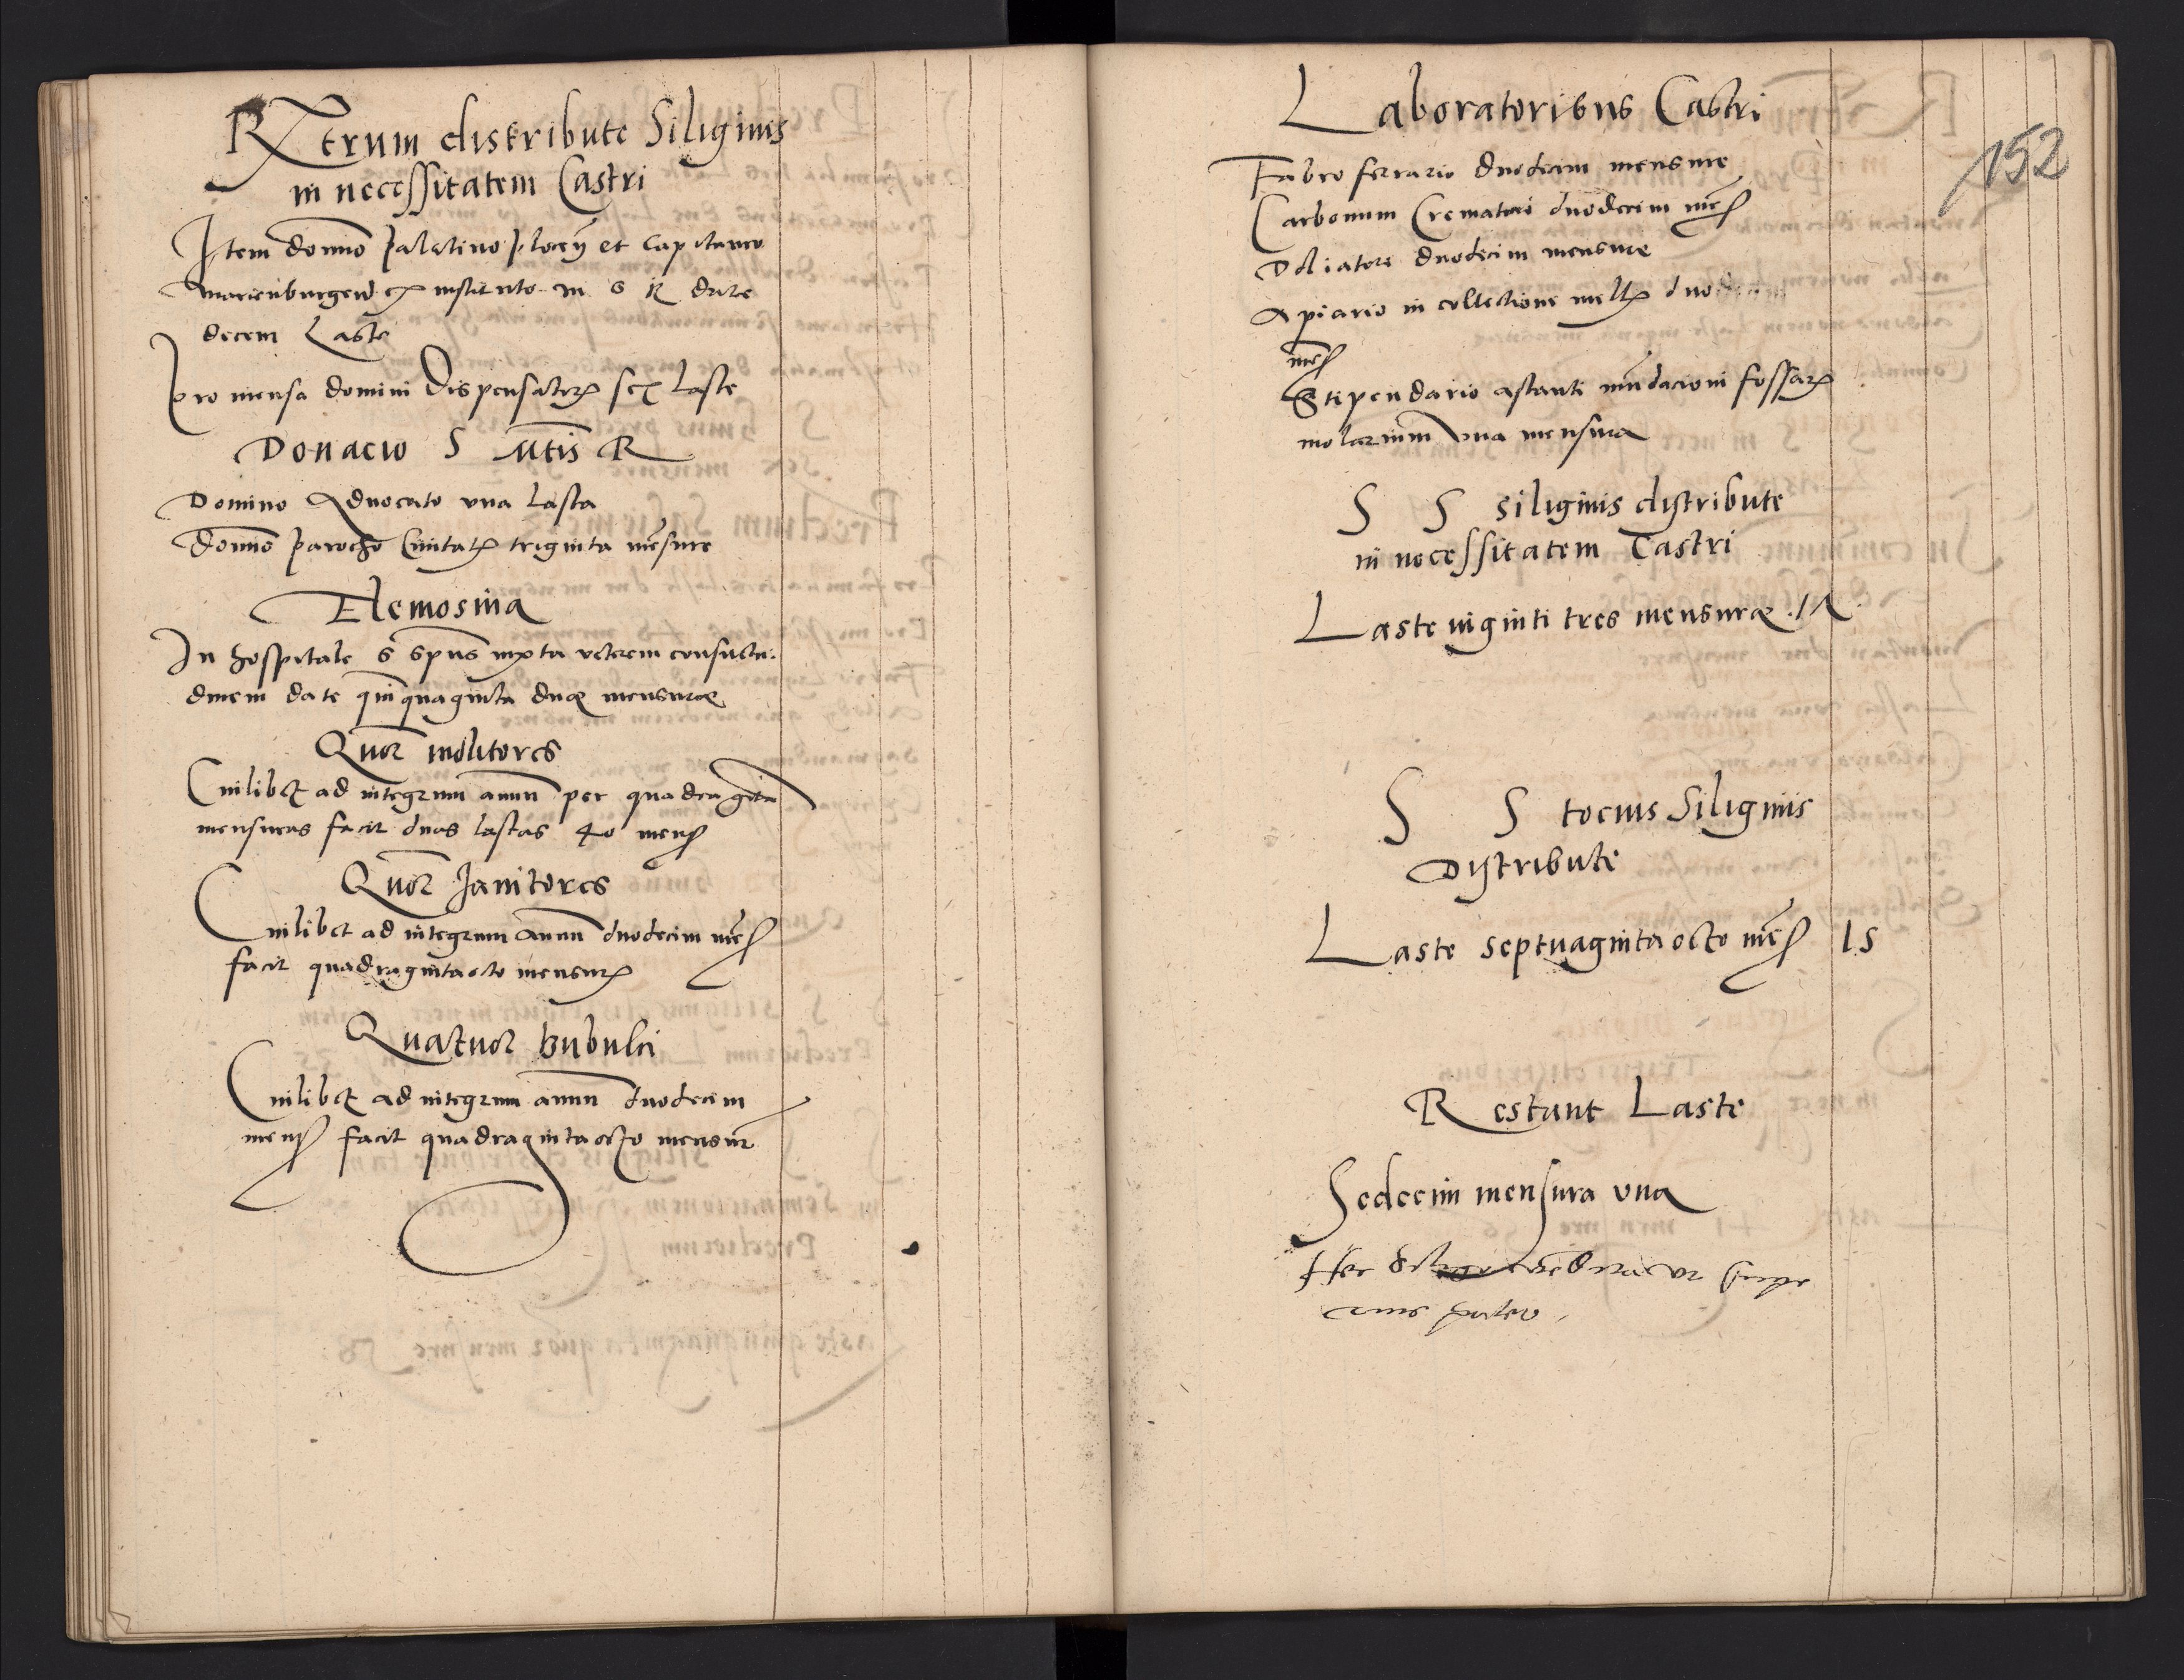 RXerum distribute Siliginis
in necessitatem Castri
Item domno palatino plocen et Capitaneo
marienburgen ex instituto m s R date
decem Laste
Pro mensa domini Dispensatoris sex laste
Donacio S Mtis R
Domino Advocato una Lasta
Domno parocho Civitatis triginta mensure
Elemosina
In hospitale s spus iuxta veterem consuetu
dinem date quinquaginta due mensure
Quor molitores
Cuilibet ad integrum annu per quadraginta
mensuras facit duas lastas 40 mens
Quor Janitores
Cuilibet ad integrum annu duodecim mes
facit quadraginta octo mensuras
Quatuor bubulci
Cuilibet ad integrum annu duodecim
mens facit quadraginta octo mensur
152
Laboratoribus Castri
Fabro ferrario duodecim mensure
Carbonum Crematori duodecim mes
Doliatori duodecim mensure
Apiario in collectione mellis duodecim
mes
Stipendario astanti mundacioni fossarum
molarium una mensura
S S siliginis distribute
in necessitatem Castri
Laste viginti tres mensure
S S tocius Siliginis
Distribute
Laste septuaginta octo mes 15
Restant Laste
Sedecim mensura una
Hec